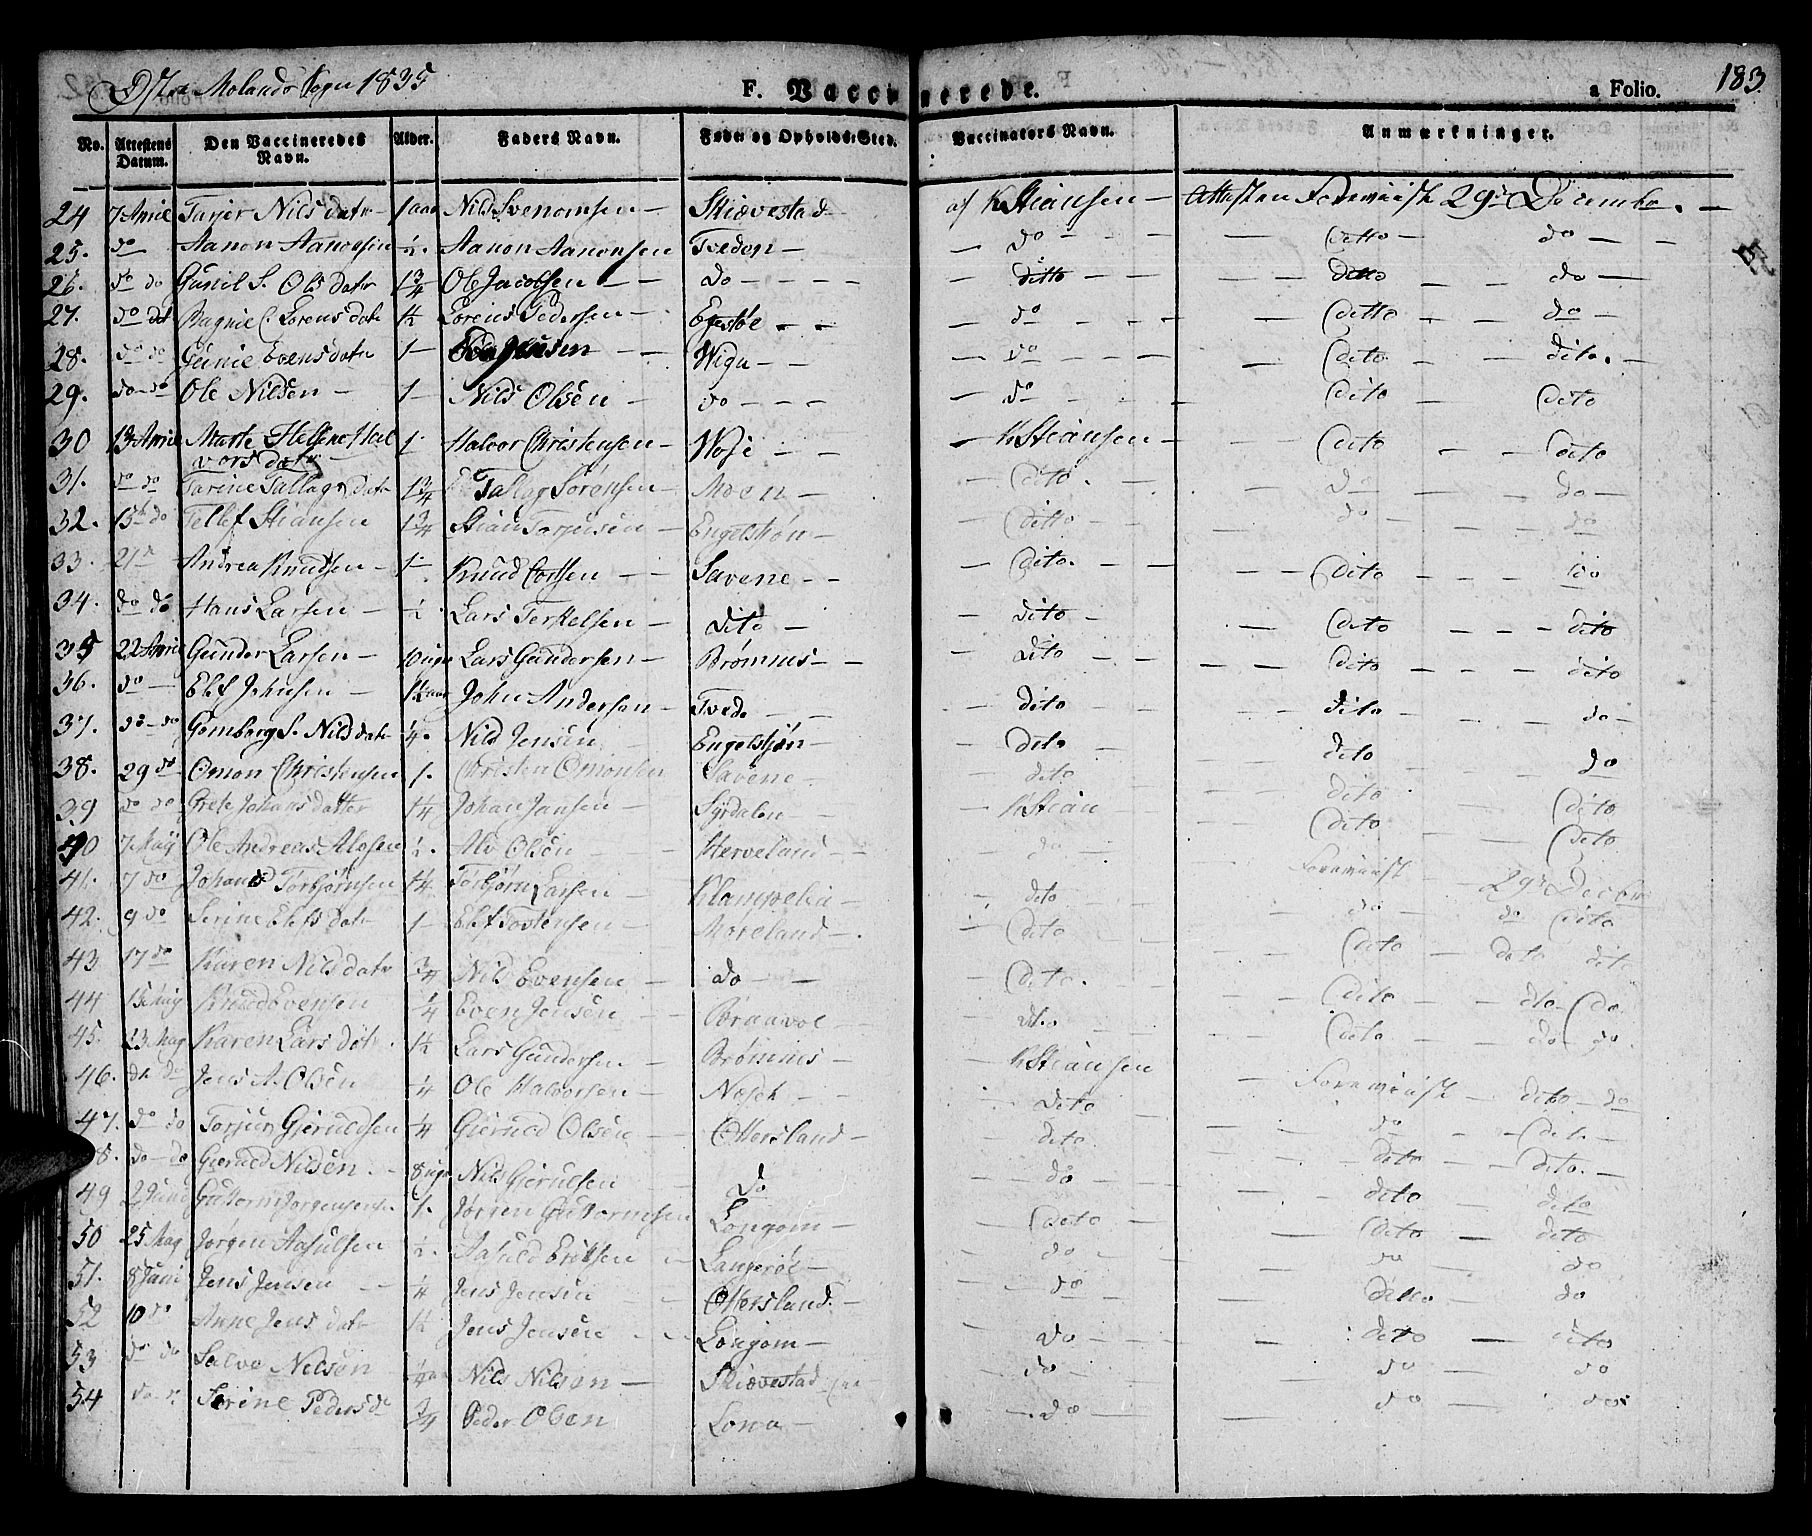 Østre Molands Sogn 1835 F. Vaccinerede. a Folio. 183
No. Attestens Datum. Den Vaccineredes Navn. Alder. Faders Navn. Føde og Opholds Sted. Vaccinators Navn. Anmærkninger.
24 7 April Tarjer Nils datr 1 aar Nils Svenomsen Skiævestad af KStiansen Attesten Foreviist 29de December.
25. do Aanon Aanonsen ½. Aanon Aanonsen Tveden do ditto do
26. do do Gunil S. Ols datr 1¾ Ole Jacobsen do ditto ditto do
27. do Lorens datr Lorens Pedersen Egestøe do ditto do
28. do do Gunie Evens datr 1 Wiga do dito dito.
29. do do Ole Nilsen 1 Nils Olsen do do dito dito
30 13 April Marte Hellene Hal
vors datr 1 Halvor Christensen Woje KStiansen dito dito
31. do do Tarine Tallags datr 1¾ Tallag Sørensen Moen dito. do do
32. 15de do Tellef Stiansen 1¾ Stian Torjusen Engelshøn ditto do do
33. 21 Andrea Knudsen 1 Knud Savene dito. dito do
34. do do Hans Larsen ½ Lars Terkelsen dito dito dito dito
35 22 April Gunder Larsen 10 uger Lars Gundersen Brømnes dito dito dito
36. do Elef Johnsen 1½ aar John Andersen Tvede dito dito do
37. do do Gomborg S. Nilsdatr ¼. Nils Jensen Engelshøn dito dito do
38. 29 do Omon Christensen 1. Christen Omonsen Savene dito dito dito
39 do do Grete Johans datter 1¼ Johan Jansen Syrdalen KStian dito dito
40 7 Maÿ Ole Andreas Alosen ½. Alv Olsen Herveland do Foreviist 29de Decebr
41. 7 do Johans Torbjørnsen 1¼ Torbjørn Larsen Klampelia dito do do dito
42. 9 do Serine Elefs datr 1 Elef Tostensen Moreland dito dito dito dito
43 17 do Karen Nils datr ¾ Nils Evensen do dito. dito dito do
44 15 Maÿ Knud Evensen ¼ Even Jensen Braavol dito dito do do.
45. 23 May Karen Lars datr. 1½ Lars Gundersen Brømnes KStiansen Foreviist dito do
46. do do Jens A. Olsen ¼ Ole Halvorsen Næseh dito do dito
47. do do Torjus Gjeruldsen ¼ Gjeruld Olsen Ottersland dito. dito dito.
48. do do Gieruld Nilsen. 8 uger Nils Gjerulsen do do dito dito
49 2 Juni Guttorm Jorgensen 1. Jørgen Guttormsen Longom dito dito dito
50 25 May Jørgen Aasulsen ½. Aasuld Eriksen Langerøe do do do
51. 8 Juni Jens Jensen ¼ Jens Jensen Ottersland. do dito do
52 10 do Anne Jens datr 1½ Jens Jensen Longom do dito dito
53 do do Salve Nelsen Nils Nilsen Skiævestad do do do
54 Serine Peders ¾ Peder Olsen Lona do do do